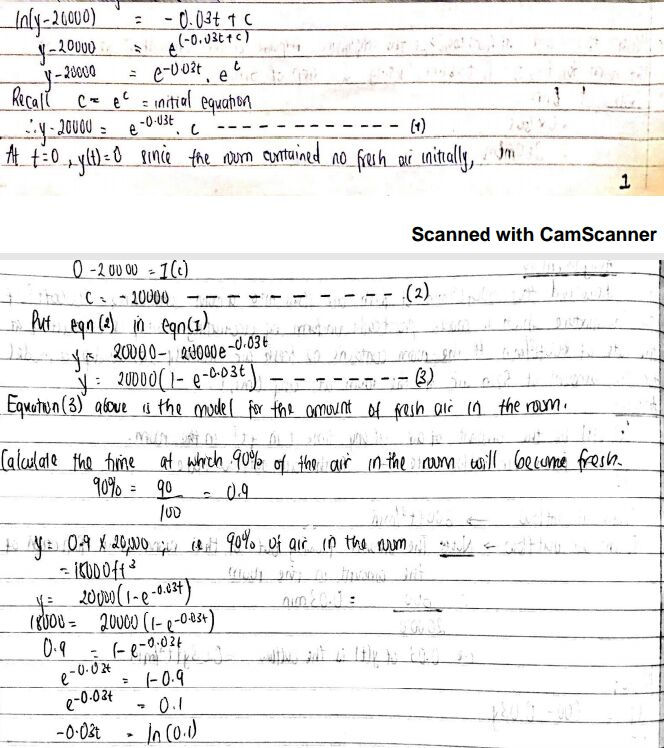 ln(y-20000) = -0.03t + c
y-20000 = e^(-0.03t+c)
y-20000 = e^-0.03t . e^c
Recall c = e^c = initial equation
∴ y-20000 = e^-0.03t . c ------------ (1)
At t=0, y(t)=0 since the room contained no fresh air initially,
1
Scanned with CamScanner
0-20000 = 1(c)
c = -20000 ---------- (2)
Put eqn (2) in eqn(1)
y = 20000 - 20000e^-0.03t
y = 20000(1-e^-0.03t) --------- (3)
Equation(3) above is the model for the amount of fresh air in the room.
Calculate the time at which 90% of the air in the room will become fresh.
90% = 90/100 = 0.9
y = 0.9 x 20,000, ie 90% of air in the room
= 18000ft^3
y = 20000(1-e^-0.03t)
18000 = 20000(1-e^-0.03t)
0.9 = 1-e^-0.03t
e^-0.03t = 1-0.9
e^-0.03t = 0.1
-0.03t = ln(0.1)